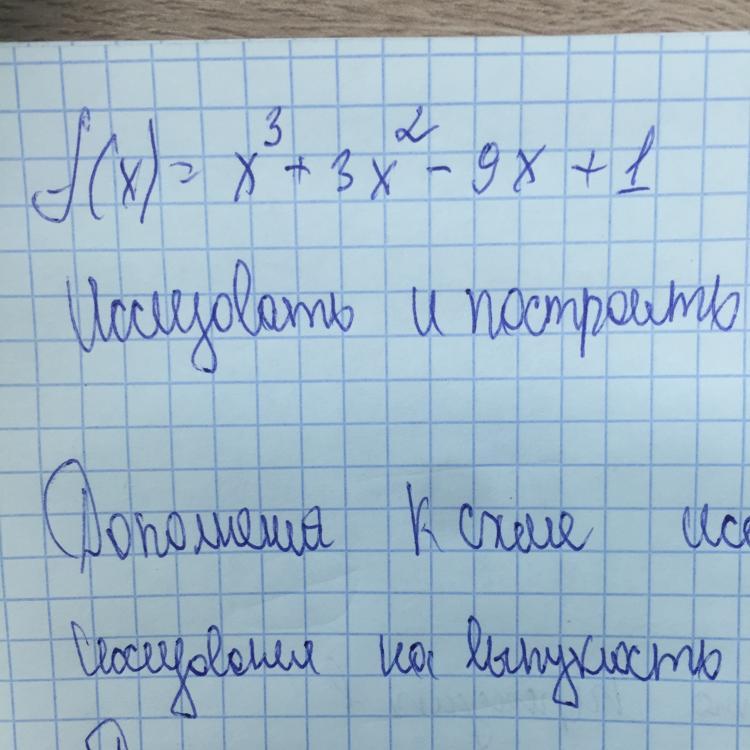 f(x) = x³ + 3x² - 9x + 1
Исследовать и построить
Дополнения к схеме исс
исследования на выпуклость